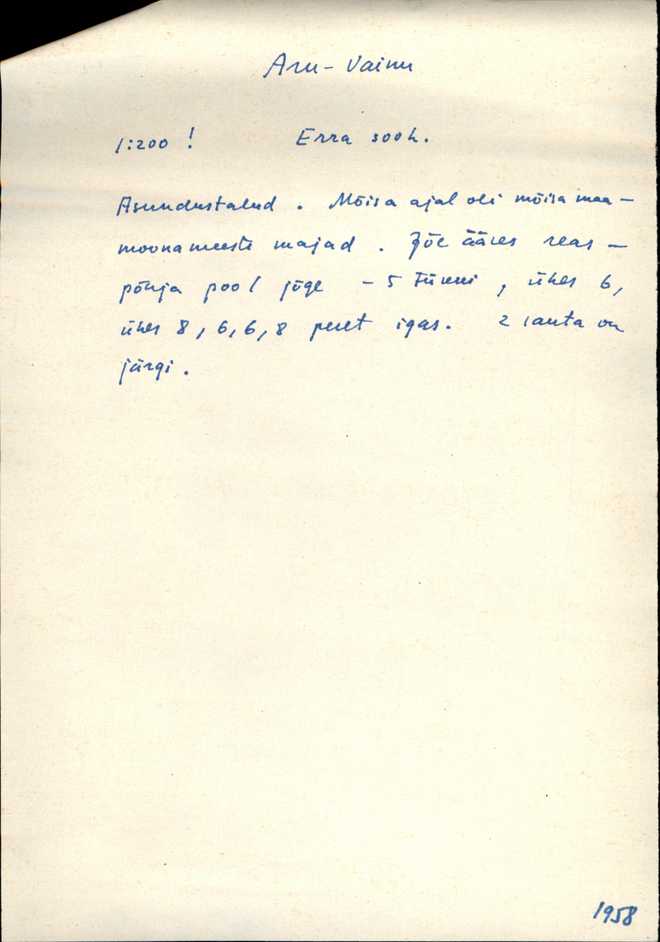 Aru-Vainu
1:200 ! Erra sooh.
Asundustalud. Mõisa ajal oli mõisa maa-
moonameeste majad. Jõe ääres reas –
põhja pool jõge – 5 tüki, ühes 6,
ühes 8, 6, 6, 8 peret igas. 2 lauta on
järgi.
1958